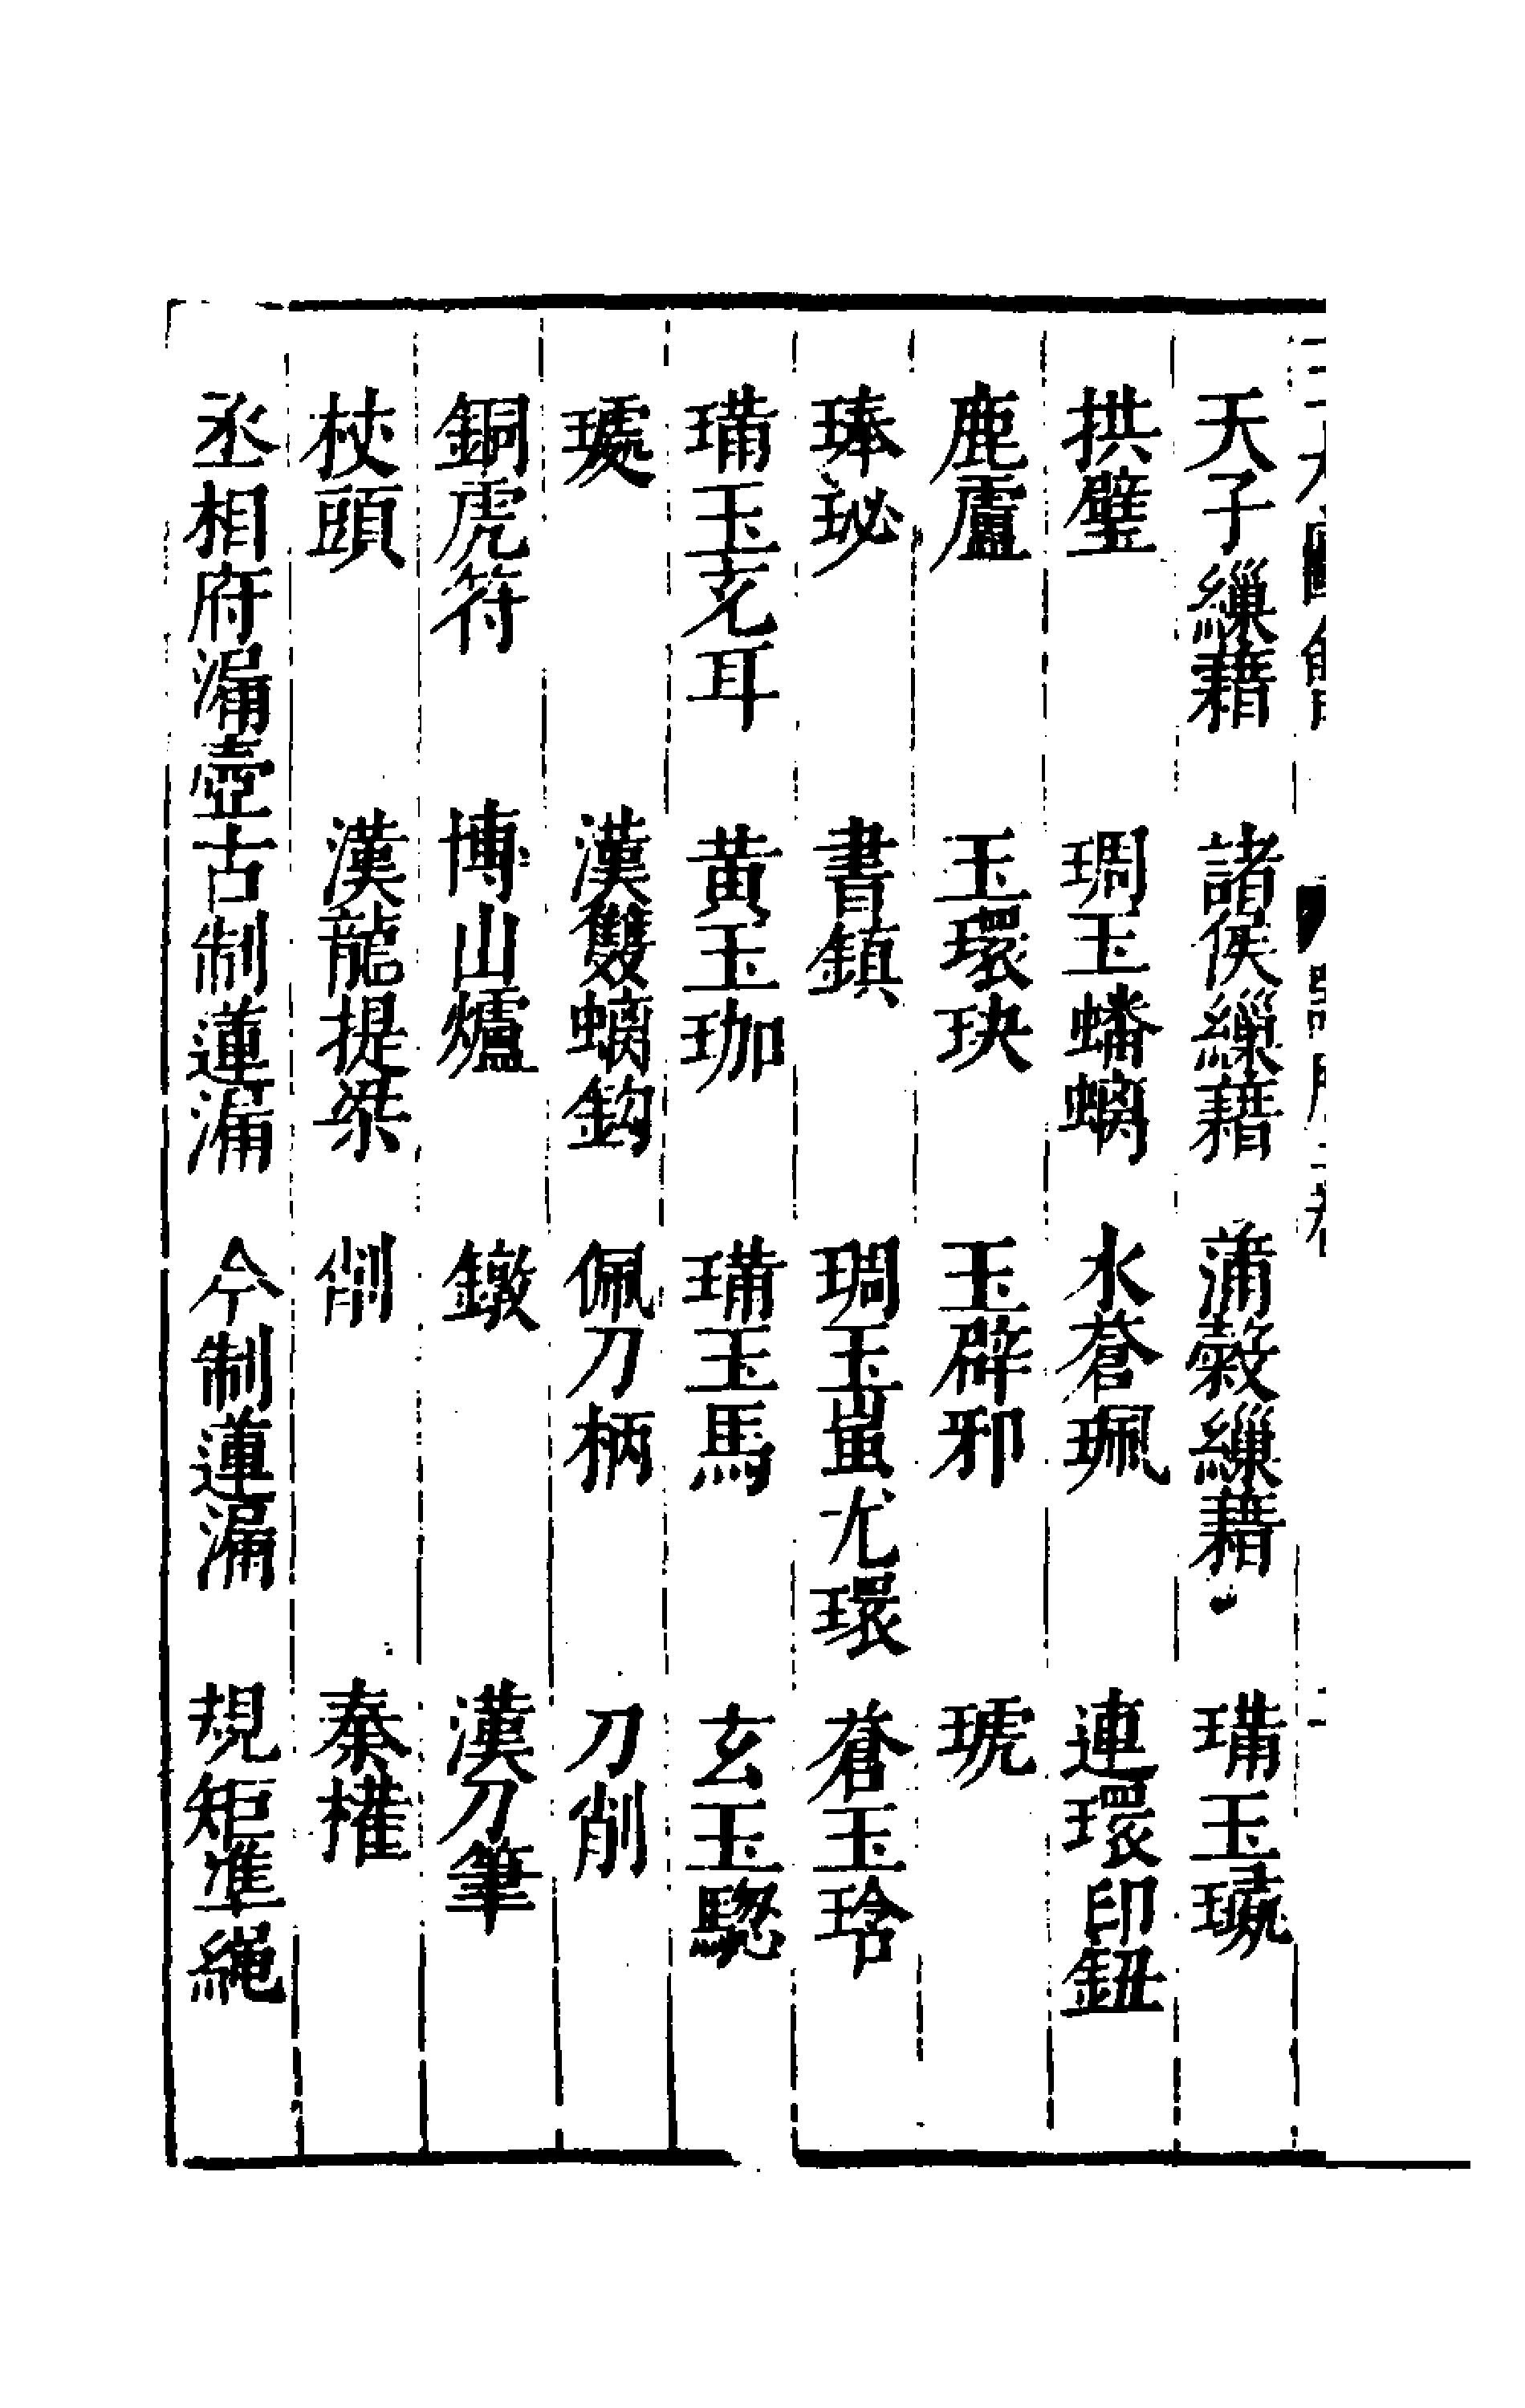 天子繅藉　諸侯繅藉　蒲穀繅藉　㻞玉璏
拱璧　琱玉蟠螭　水蒼珮　連環印鈕
鹿盧　玉環玦　玉辟邪　琥
琫珌　書鎮　琱玉蚩尤環　蒼玉琀
㻞玉充耳　黃玉珈　㻞玉馬　玄玉驄
璏　漢雙螭鈎　佩刀柄　刀削
銅虎符　博山爐　鐓　漢刀筆
杖頭　漢龍提梁　削　秦權
丞相府漏壺　古制蓮漏　今制蓮漏　規矩準繩